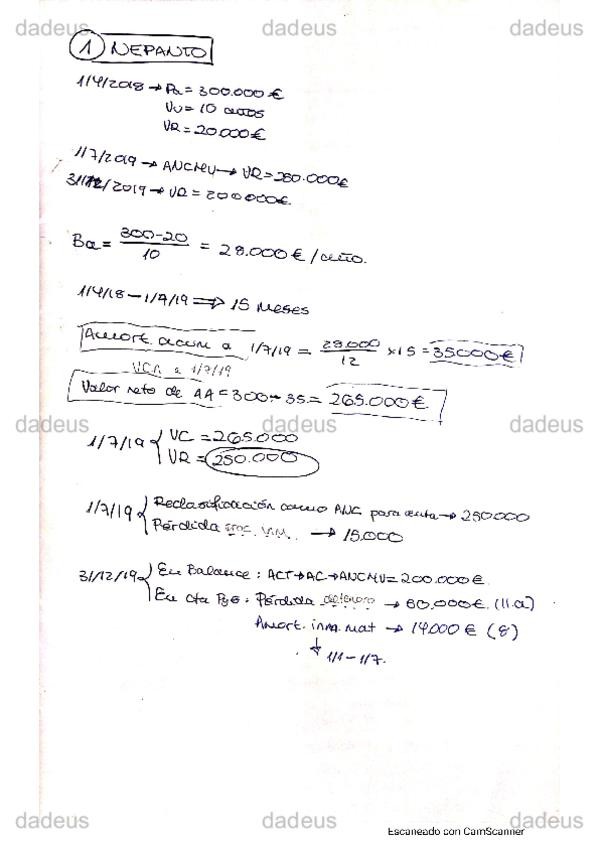 dadeus dadeus dadeus
1 NEPANTO
1/4/2018 → Pa = 300.000 €
VU = 10 años
VR = 20.000 €
1/7/2019 → ANCMV → VR = 250.000 €
31/12/2019 → VR = 200.000 €.
Ba = 300-20 / 10 = 28.000 € / año.
1/4/18 - 1/7/19 ⇒ 15 meses
Amort. acum a 1/7/19 = 28.000 / 12 x 15 = 35000 €
VCN a 1/7/19
Valor neto de AA = 300 - 35 = 265.000 €
dadeus dadeus dadeus
1/7/19 { VC = 265.000
VR = 250.000
1/7/19 { Reclasificación como ANC para venta → 250000
Pérdida → 15.000
31/12/19 { En Balance: ACT → AC → ANCMV = 200.000 €.
En Cta PyG: Pérdida deterioro → 60.000 €. (11.a)
Amort. inm. mat → 14.000 € (8)
↓ 1/1 - 1/7.
dadeus dadeus dadeus
Escaneado con CamScanner